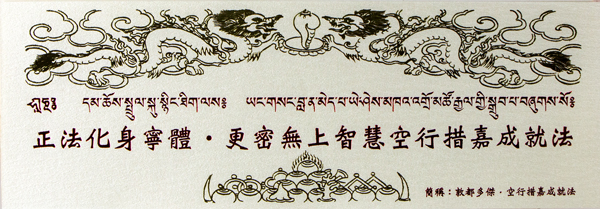 དམ་ཆོས་སྤྲུལ་སྐུ་སྙིང་ཐིག་ལས༔ ཡང་གསང་བླ་ན་མེད་པ་ཡེ་ཤེས་མཁའ་འགྲོ་མཚོ་རྒྱལ་གྱི་སྒྲུབ་པ་བཞུགས་སོ༔
正法化身寧體・更密無上智慧空行措嘉成就法
簡稱：敦都多傑・空行措嘉成就法